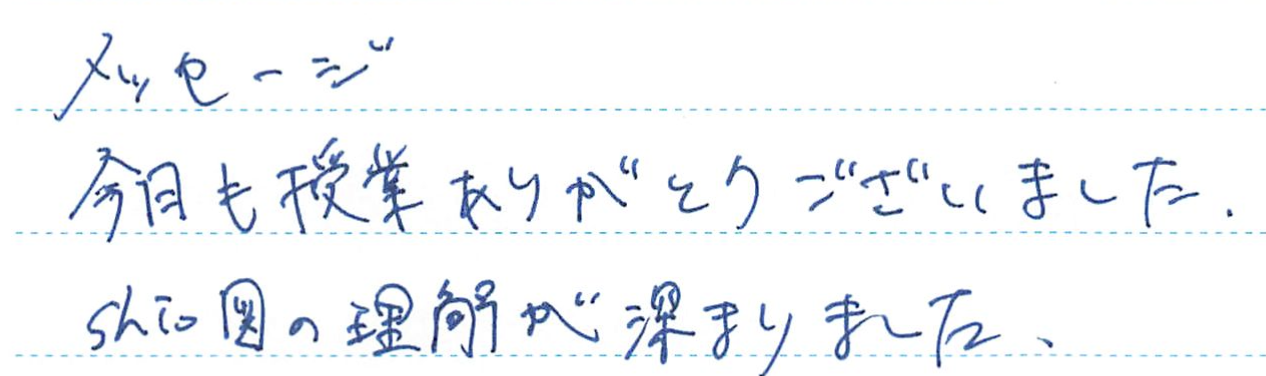 メッセージ
今日も授業ありがとうございました.
図の理解が深まりました、